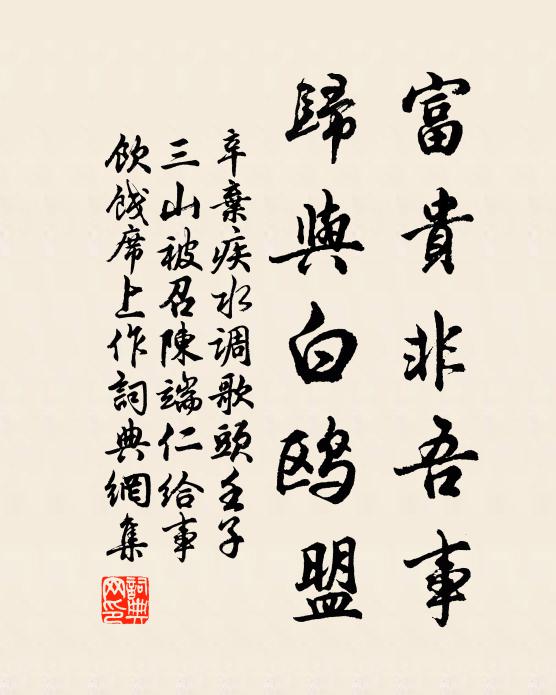 富貴非吾事
歸與白鸥盟
辛棄疾水调歌頭壬子
三山被召陳端仁給事
飲餞席上作詞典網集
詞典網印